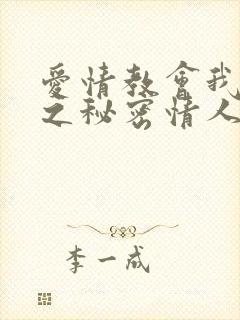 愛情教會我
之秘密情人
李一成